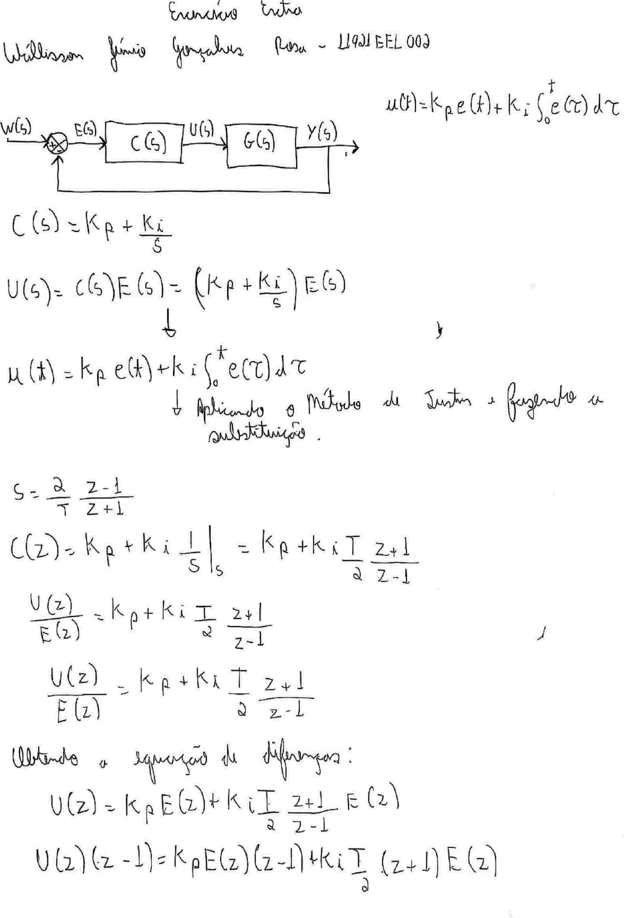 Exercício Extra
Wállisson Júnio Gonçalves Rosa - 11921EEL002
u(t)=kpe(t)+ki∫₀ᵗe(τ)dτ
W(s) E(s) C(s) U(s) G(s) Y(s)
+ -
C(s)=Kp+Ki/s
U(s)=C(s)E(s)=(Kp+Ki/s)E(s)
↓
u(t)=kpe(t)+ki∫₀ᵗe(τ)dτ
↓ Aplicando o Método de Tustin e fazendo a
substituição.
S=2/T z-1/z+1
C(z)=Kp+Ki 1/s|s =Kp+Ki T/2 z+1/z-1
U(z)/E(z)=Kp+Ki T/2 z+1/z-1
U(z)/E(z)=Kp+Ki T/2 z+1/z-1
Obtendo a equação de diferenças:
U(z)=KpE(z)+Ki T/2 z+1/z-1 E(z)
U(z)(z-1)=KpE(z)(z-1)+Ki T/2 (z+1)E(z)